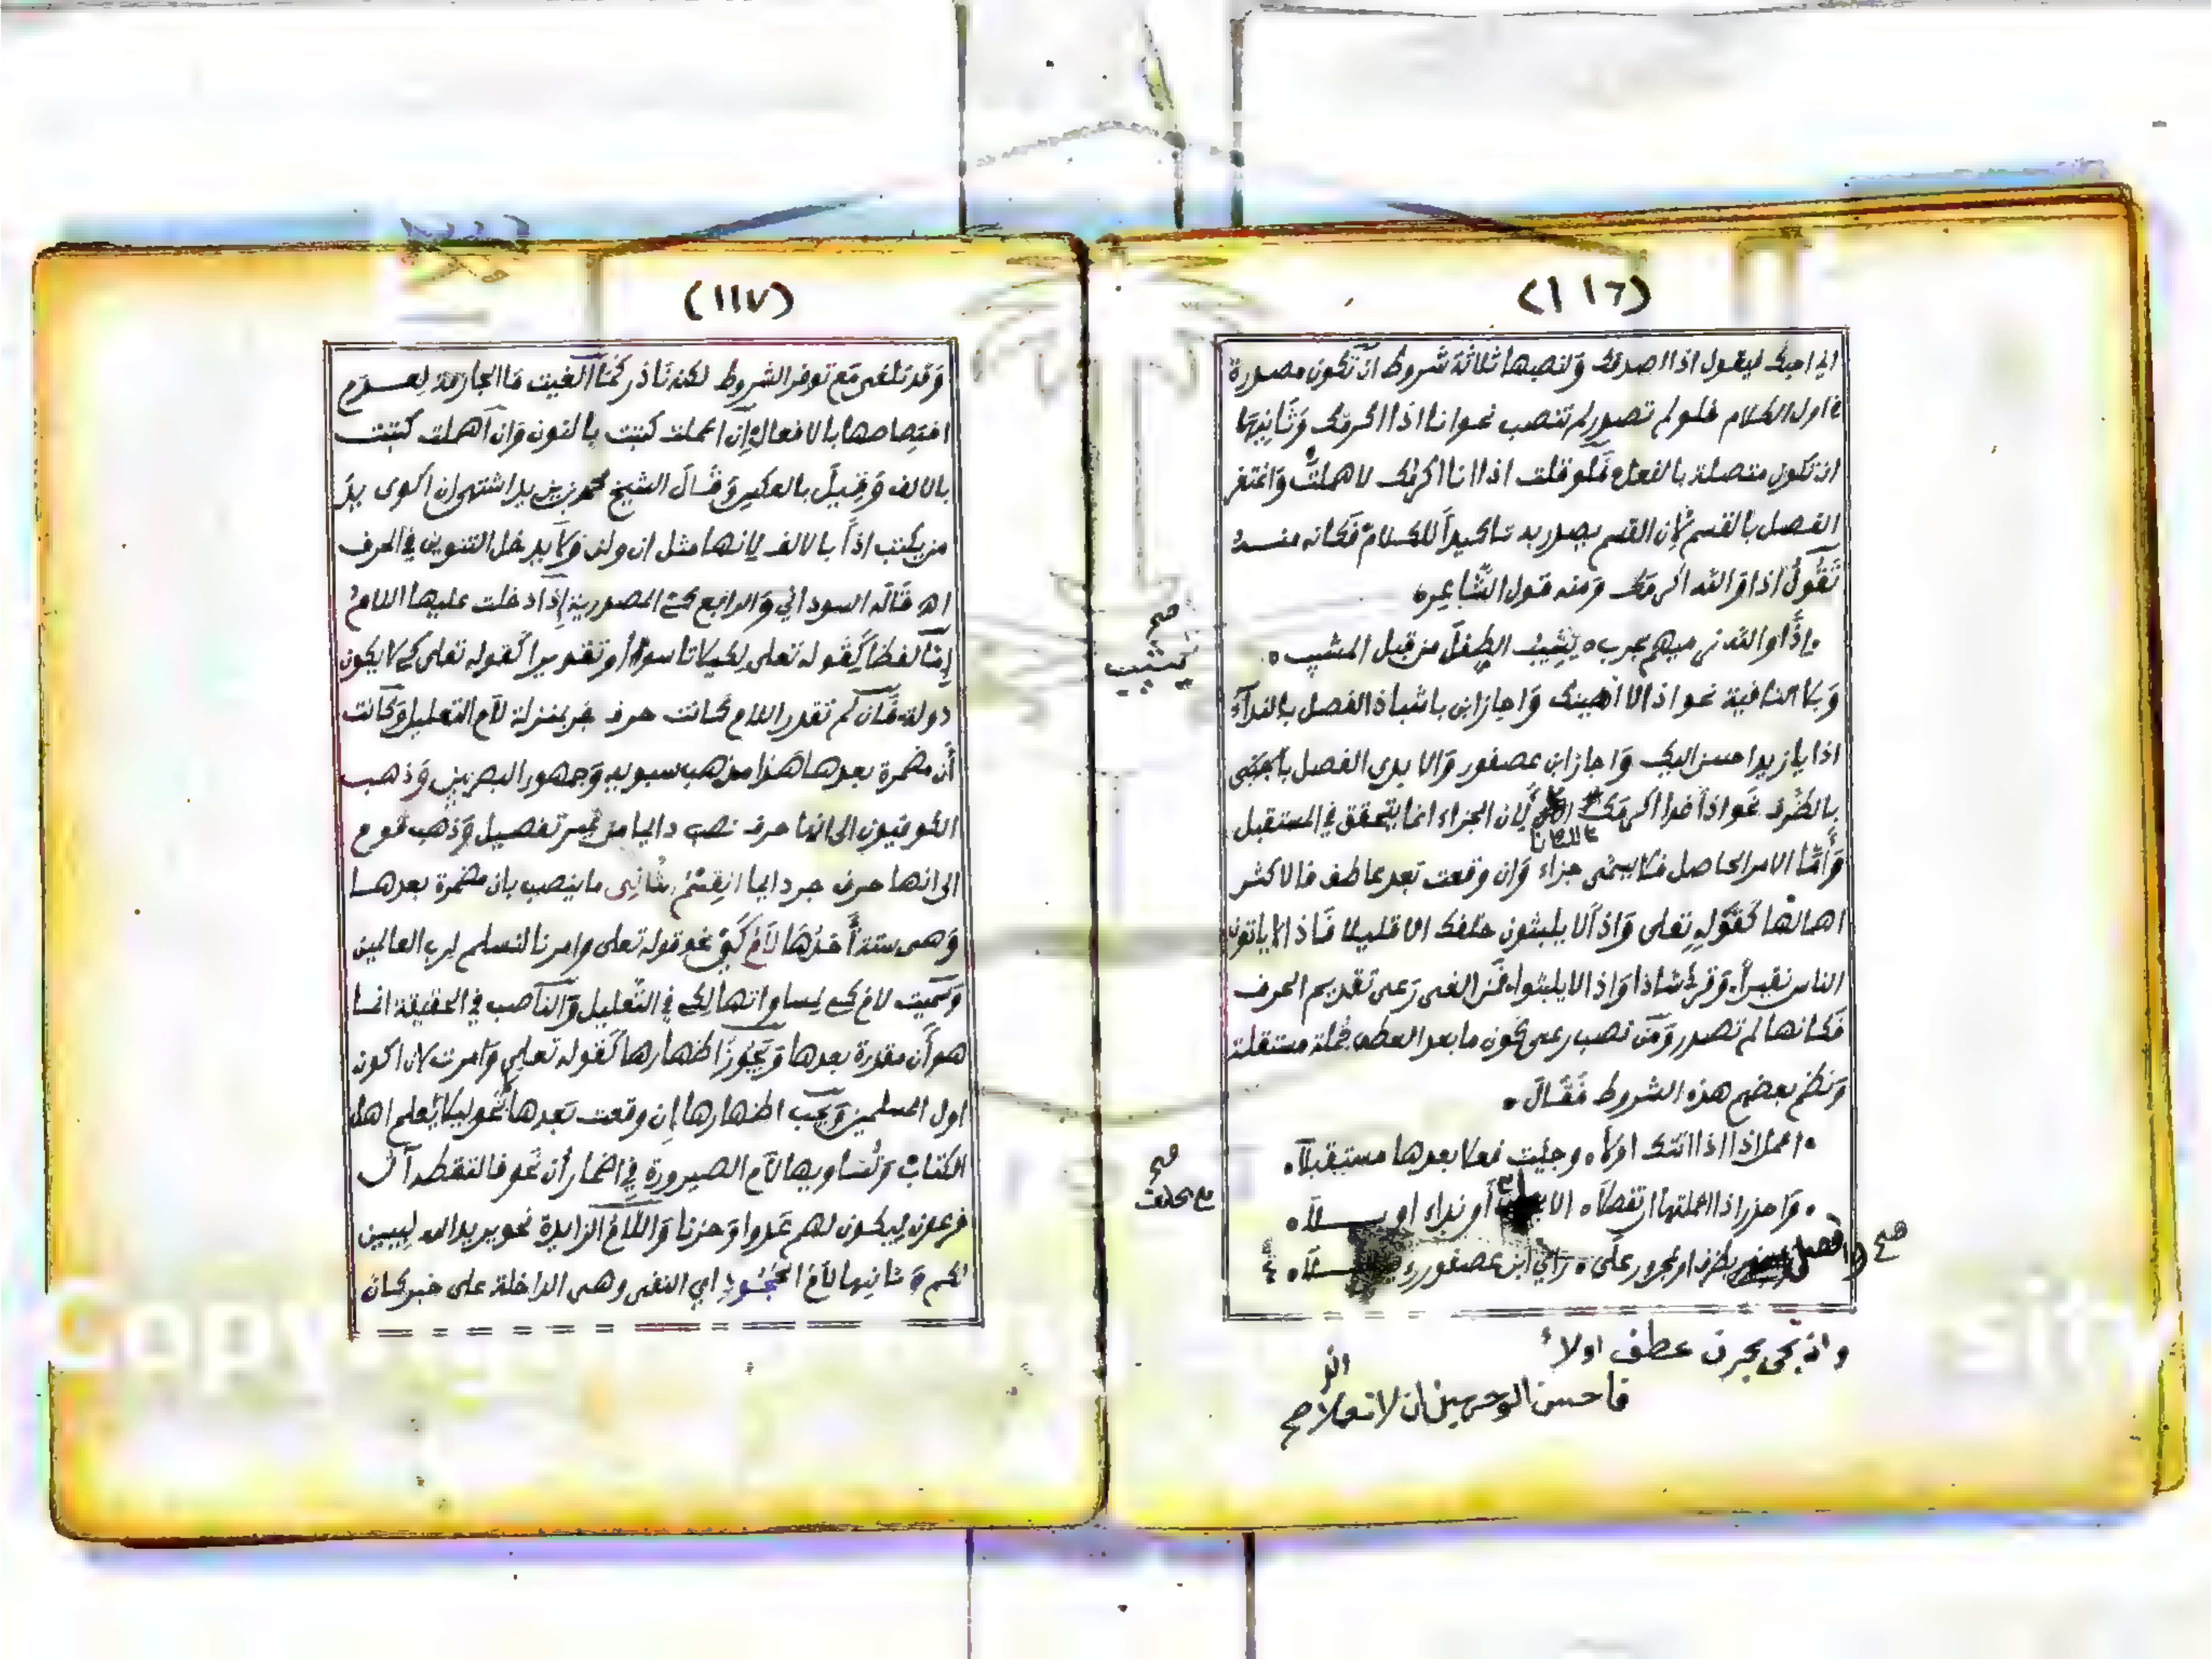 (١١٦)
اني احبك فيقول اذا اصدقك ولنصبها ثلاثة شروط ان تكون مصدرة
في اول الكلام فلو لم تصدر لم تنصب نحو انا اذا اكرمك وثانيها
ان تكون متصلة بالفعل فلو قلت اذا انا اكرمك لاهملت واغتفر
الفصل بالقسم لان القسم يصدر به تاكيدا للكلام فكانه منه
تقول اذا والله اكرمك ومنه قول الشاعر
اذا والله نرميهم بحرب يشيب الطفل من قبل المشيب
وبلا النافية نحو اذا لا اهينك واجاز ابن باشباذ الفصل بالنداء
اذا يا زيد احسن اليك واجاز ابن عصفور والابدي الفصل
بالظرف نحو اذا غدا اكرمك لان الجزاء انما يتحقق في المستقبل
واما الامر الحاصل فلا يسمى جزاء وان وقعت بعد عاطف فالاكثر
اهمالها كقوله تعلى واذا لا يلبثون خلفك الا قليلا فاذا لا ياتون
الناس نقيرا وقرئ شاذا واذا لا يلبثوا فمن الغى رعى تقديم الحرف
فكانها لم تصدر ومن نصب رعى كون ما بعد العطف جملة مستقلة
ونظم بعضهم هذه الشروط فقال
اعمل اذا اذا اتتك اولا وجئت فعلا بعدها مستقبلا
واحذر اذا اعملتها ان تفصلا الا او نداء او بلا
وافصل بظرف او بمجرور على راي ابن عصفور
وان تجى بحرف عطف اولا
فاحسن الوجهين ان لا تعملا صح
صح
يشيب
صح
صح
(١١٧)
وقد تلغى مع توفر الشروط لكنه نادر كما الغيت ما الحجازية لعدم
اختصاصها بالافعال ان اعملت كتبت بالنون وان اهملت كتبت
بالالف وقيل بالعكس وقال الشيخ محمد بن يزيد اشتهى ان اكوى يد
من يكتب اذا بالالف لانها مثل ان ولن ولا يدخل التنوين في الحرف
اه قاله السوداني والرابع كي المصدرية اذا دخلت عليها اللام
اما لفظا كقوله تعلى لكيلا تاسوا او تقديرا كقوله تعلى كي لا يكون
دولة فان لم تقدر اللام كانت حرف جر بمنزلة لام التعليل وكانت
أن مضمرة بعدها هذا مذهب سيبويه وجمهور البصريين وذهب
الكوفيون الى انها حرف نصب دايما من غير تفصيل وذهب قوم
الى انها حرف جر دايما القسم الثانى ما ينصب بان مضمرة بعدها
وهى ستة أحدها لام كي نحو قوله تعلى وامرنا لنسلم لرب العالمين
وسميت لام كي لمساواتها لكي في التعليل والناصب في الحقيقة انما
هو أن مقدرة بعدها ويجوز اظهارها كقوله تعلى وامرت لان اكون
اول المسلمين ويجب اظهارها ان وقعت بعدها نحو ليلا يعلم اهل
الكتاب وتساويها لام الصيرورة في اضمار أن نحو فالتقطه آل
فرعون ليكون لهم عدوا وحزنا واللام الزايدة نحو يريد الله ليبين
لكم وثانيها لام الجحود اي النفى وهى الداخلة على خبر كان